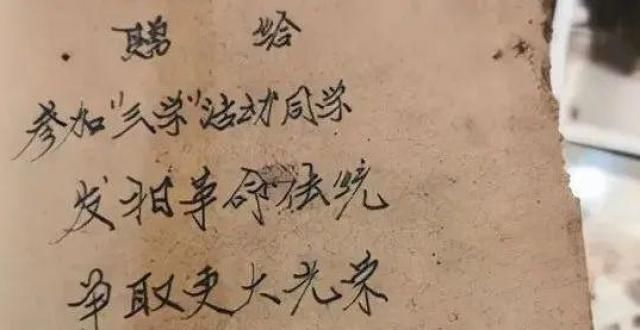 赠 给
参加“三学”活动同学
发扬革命传统
争取更大光荣